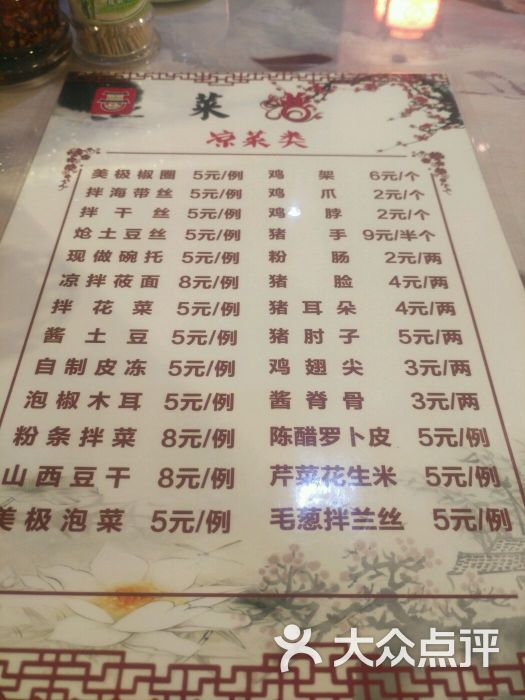 菜
凉菜类
美极椒圈 5元/例 鸡架 6元/个
拌海带丝 5元/例 鸡爪 2元/个
拌干丝 5元/例 鸡脖 2元/个
炝土豆丝 5元/例 猪手 9元/半个
现做碗托 5元/例 粉肠 2元/两
凉拌莜面 8元/例 猪脸 4元/两
拌花菜 5元/例 猪耳朵 4元/两
酱土豆 5元/例 猪肘子 5元/两
自制皮冻 5元/例 鸡翅尖 3元/两
泡椒木耳 5元/例 酱脊骨 3元/两
粉条拌菜 8元/例 陈醋罗卜皮 5元/例
山西豆干 8元/例 芹菜花生米 5元/例
美极泡菜 5元/例 毛葱拌兰丝 5元/例
大众点评